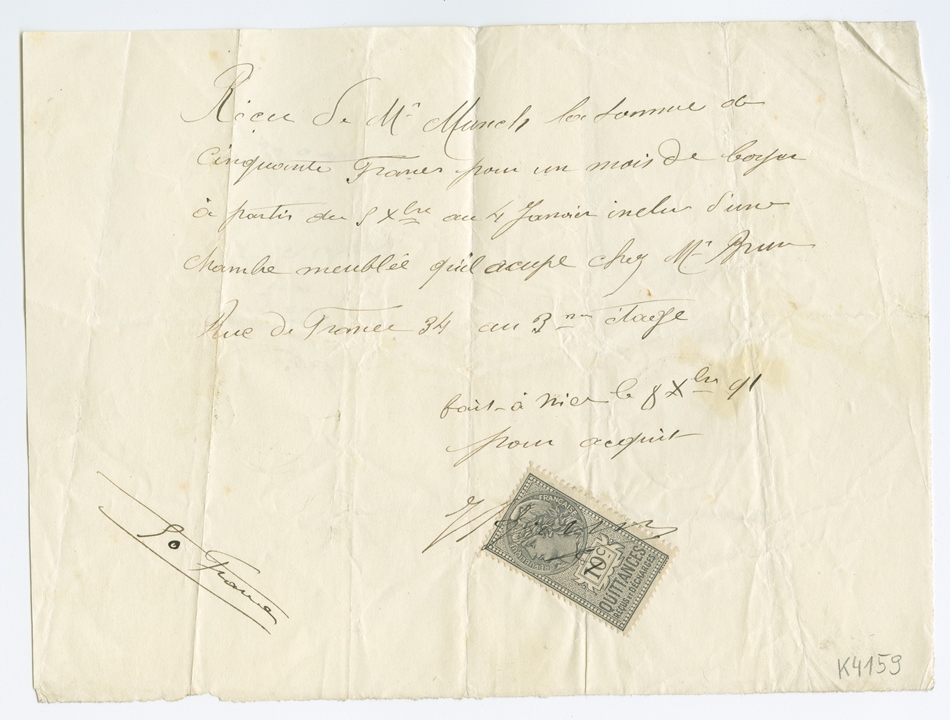 Reçu de Mr Munch la somme de
cinquante Francs pour un mois de loyer
à partir du 5 Xbre au 4 Janvier inclu d'une
chambre meublée qu'il acupe chez Mr Brun
Rue de France 34 au 3me étage
fait à Nice le 8 Xbre 91
pour acquit
50 Francs
FRANÇAISE
10c
QUITTANCES
REÇUS ET DÉCHARGES
K4159